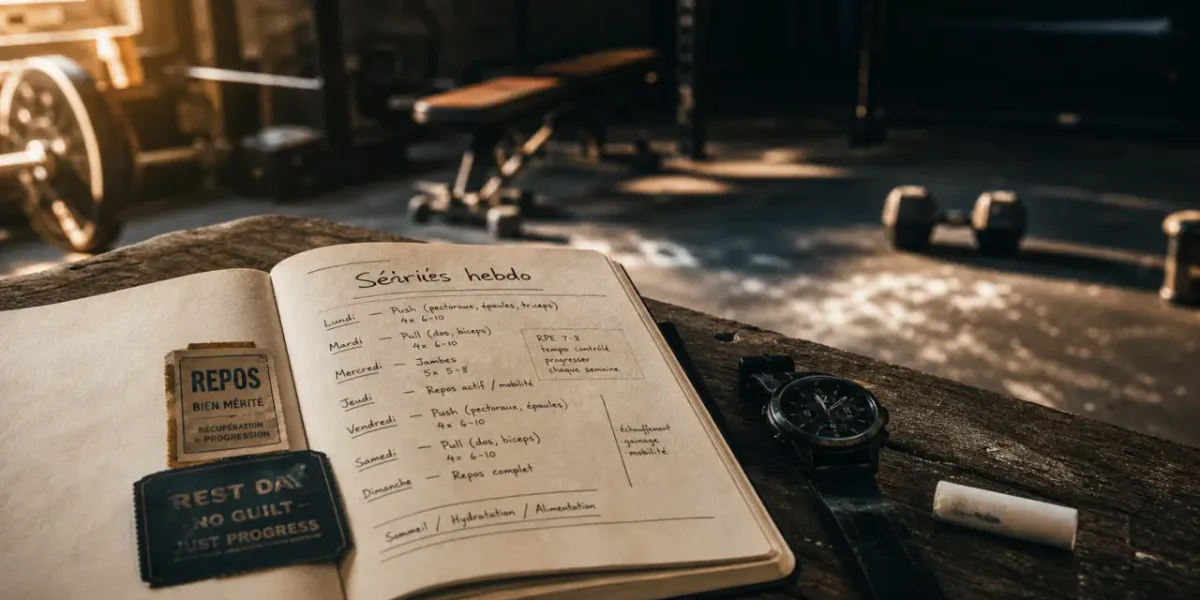 REPOS
BIEN MÉRITÉ
RÉCUPÉRATION
= PROGRESSION
REST DAY
NO GUILT —
JUST PROGRESS
hebdo
Lundi — Push (pectoraux, épaules, triceps)
4x 6-10
Mardi — Pull (dos, biceps)
4x 6-10
Mercredi — Jambes
5x 5-8
Jeudi — Repos actif / mobilité
Vendredi — Push (pectoraux, épaules)
4x 6-10
Samedi — Pull (dos, biceps)
4x 6-10
Dimanche — Repos complet
RPE 7-8
tempo contrôlé
progresser
chaque semaine
· échauffement
· gainage
· mobilité
Sommeil / Hydratation / Alimentation